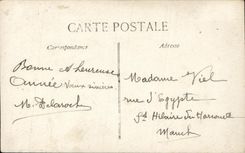 CARTE POSTALE
Correspondance
Adresse
Bonne et heureuse
Année Vœux sincères
M. Delaroch
Madame Viel
rue d'Egypte
St Hilaire du Harcouet
Manche